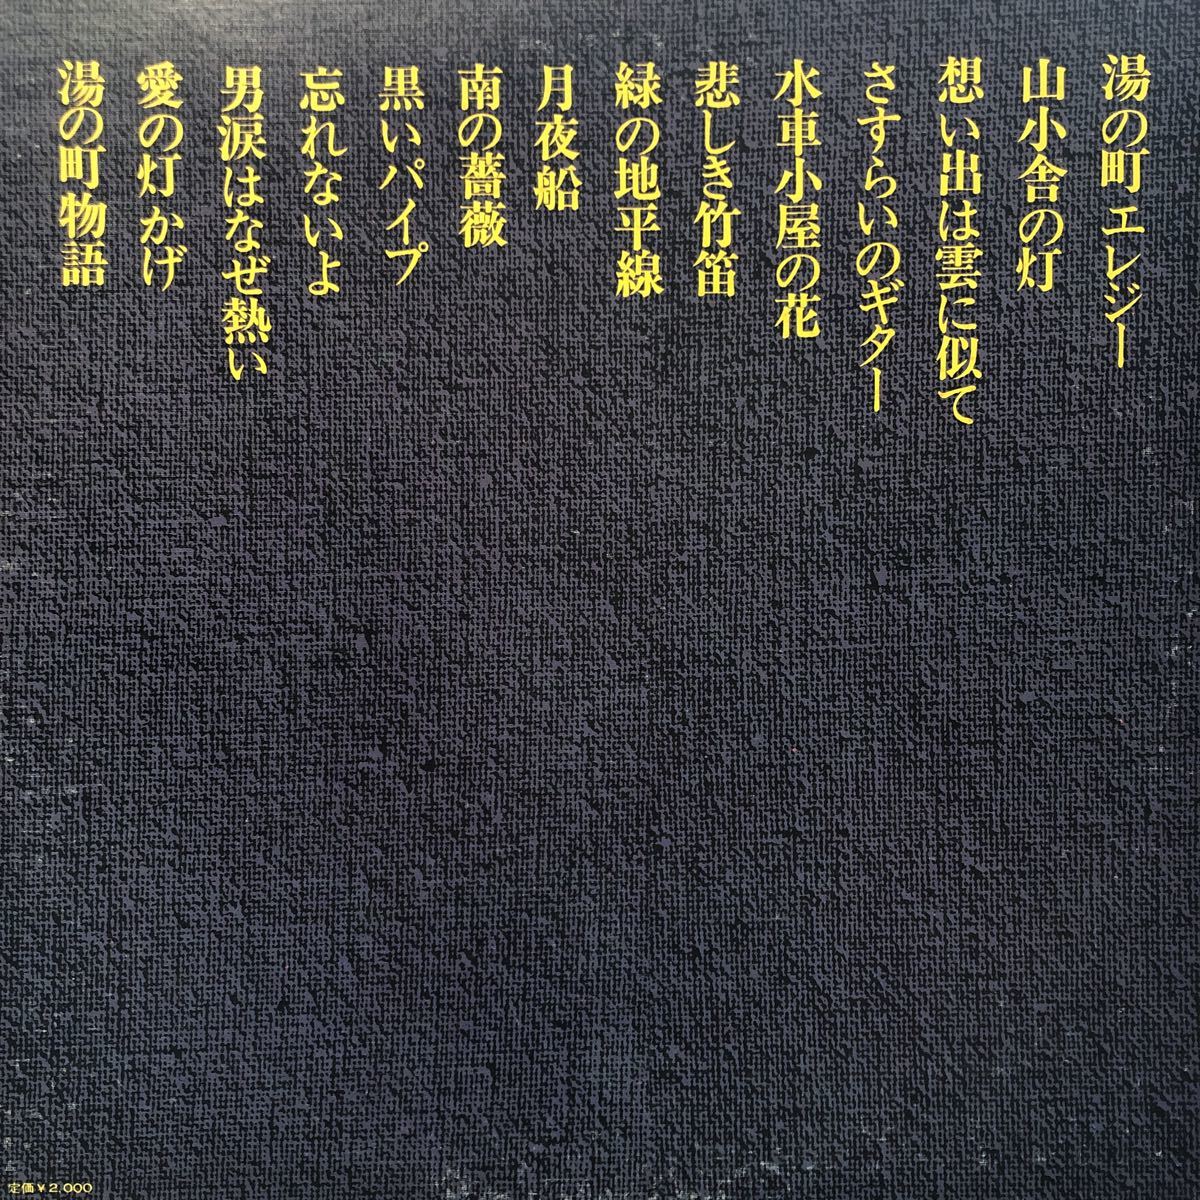 湯の町エレジー
山小舎の灯
想い出は雲に似て
さすらいのギター
水車小屋の花
悲しき竹笛
緑の地平線
月夜船
南の薔薇
黒いパイプ
忘れないよ
男涙はなぜ熱い
愛の灯かげ
湯の町物語
定価¥2,000